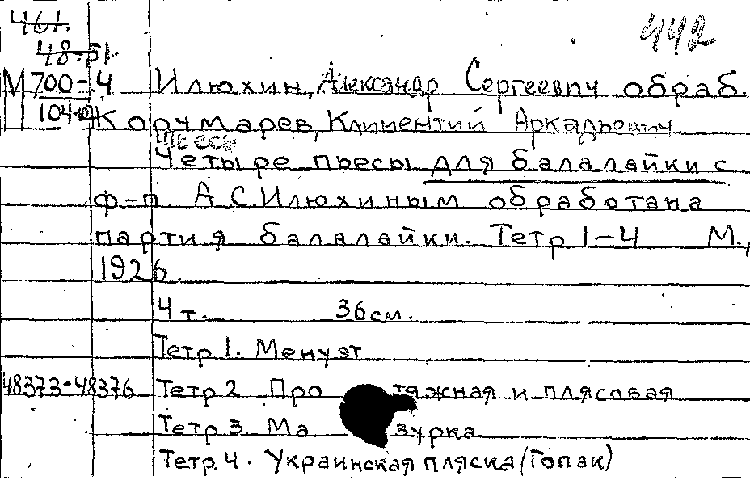 461.
48-51.
442
М 700-4 Илюхин, Александр Сергеевич обраб.
104
Корчмарев, Климентий Аркадьевич
Четыре пьесы для балалайки с
ф-п. А.С. Илюхиным обработана
партия балалайки. Тетр 1-4 М.,
1926.
4 т. 36 см.
Тетр 1. Менуэт
48373-48376 Тетр 2 Протяжная и плясовая
Тетр 3. Мазурка
Тетр. 4. Украинская пляска (Гопак)